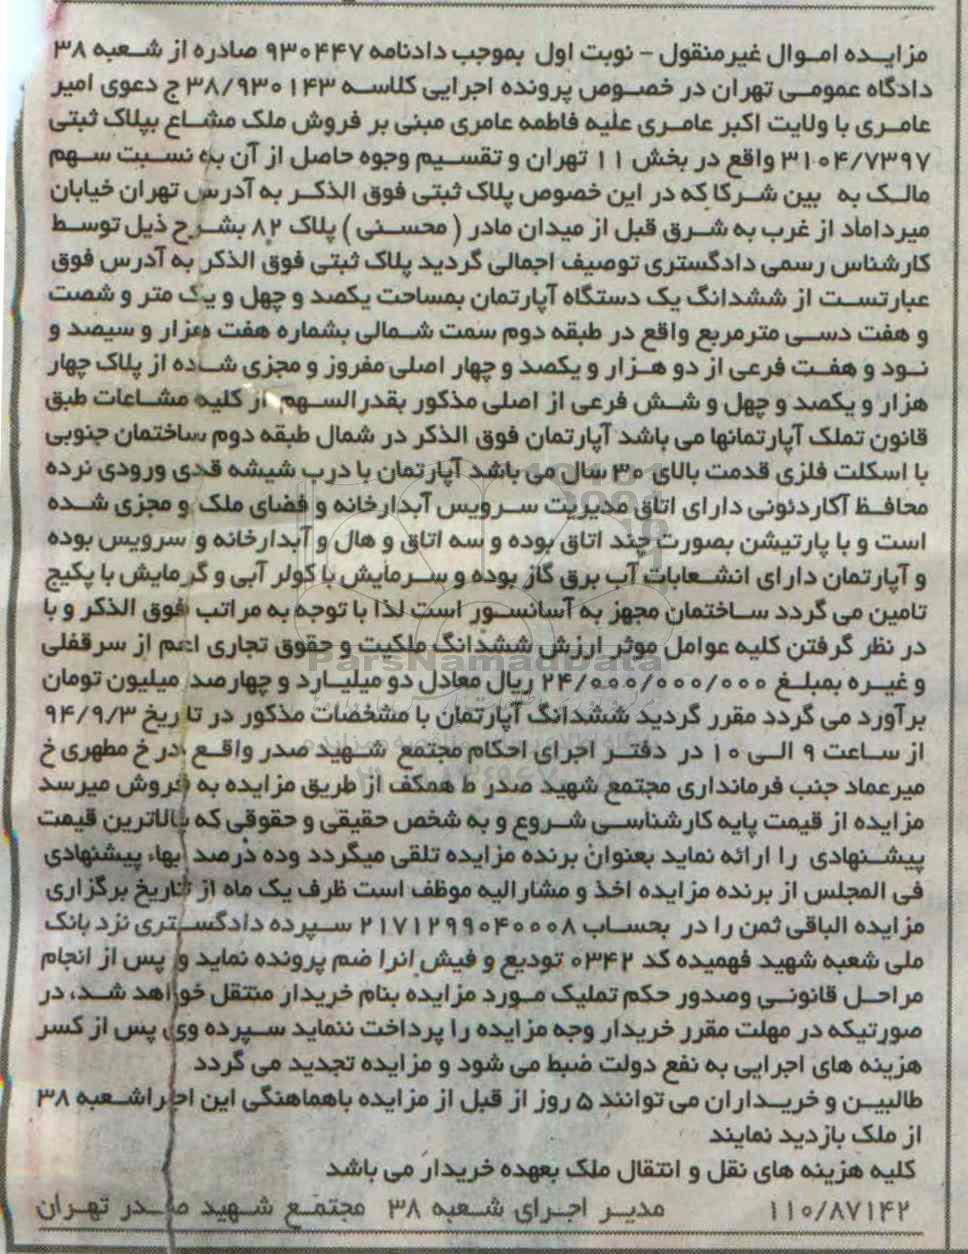 مزایده اموال غیرمنقول - نوبت اول بموجب دادنامه ۹۳۰۴۴۷ صادره از شعبه ۳۸
دادگاه عمومی تهران در خصوص پرونده اجرایی کلاسه ۳۸/۹۳۰۱۴۳ ج دعوی امیر
عامری با ولایت اکبر عامری علیه فاطمه عامری مبنی بر فروش ملک مشاع بپلاک ثبتی
۳۱۰۴/۷۳۹۷ واقع در بخش ۱۱ تهران و تقسیم وجوه حاصل از آن به نسبت سهم
مالک به بین شرکا که در این خصوص پلاک ثبتی فوق الذکر به آدرس تهران خیابان
میرداماد از غرب به شرق قبل از میدان مادر ( محسنی ) پلاک ۸۲ بشرح ذیل توسط
کارشناس رسمی دادگستری توصیف اجمالی گردید پلاک ثبتی فوق الذکر به آدرس فوق
عبارتست از ششدانگ یک دستگاه آپارتمان بمساحت یکصد و چهل و یک متر و شصت
و هفت دسی مترمربع واقع در طبقه دوم سمت شمالی بشماره هفت هزار و سیصد و
نود و هفت فرعی از دو هزار و یکصد و چهار اصلی مفروز و مجزی شده از پلاک چهار
هزار و یکصد و چهل و شش فرعی از اصلی مذکور بقدرالسهم از کلیه مشاعات طبق
قانون تملک آپارتمانها می باشد آپارتمان فوق الذکر در شمال طبقه دوم ساختمان جنوبی
با اسکلت فلزی قدمت بالای ۳۰ سال می باشد آپارتمان با درب شیشه قدی ورودی نرده
محافظ آکاردئونی دارای اتاق مدیریت سرویس آبدارخانه و فضای ملک و مجزی شده
است و با پارتیشن بصورت چند اتاق بوده و سه اتاق و هال و آبدارخانه و سرویس بوده
و آپارتمان دارای انشعابات آب برق گاز بوده و سرمایش با کولر آبی و گرمایش با پکیج
تامین می گردد ساختمان مجهز به آسانسور است لذا با توجه به مراتب فوق الذکر و با
در نظر گرفتن کلیه عوامل موثر ارزش ششدانگ ملکیت و حقوق تجاری اعم از سرقفلی
و غیره بمبلغ ۲۴/۰۰۰/۰۰۰/۰۰۰ ریال معادل دو میلیارد و چهارصد میلیون تومان
برآورد می گردد مقرر گردید ششدانگ آپارتمان با مشخصات مذکور در تاریخ ۹۴/۹/۳
از ساعت ۹ الی ۱۰ در دفتر اجرای احکام مجتمع شهید صدر واقع در خ مطهری خ
میرعماد جنب فرمانداری مجتمع شهید صدر ط همکف از طریق مزایده به فروش میرسد
مزایده از قیمت پایه کارشناسی شروع و به شخص حقیقی و حقوقی که بالاترین قیمت
پیشنهادی را ارائه نماید بعنوان برنده مزایده تلقی میگردد وده درصد بهاء پیشنهادی
فی المجلس از برنده مزایده اخذ و مشارالیه موظف است ظرف یک ماه از تاریخ برگزاری
مزایده الباقی ثمن را در بحساب ۲۱۷۱۲۹۹۰۴۰۰۰۸ سپرده دادگستری نزد بانک
ملی شعبه شهید فهمیده کد ۰۳۴۲ تودیع و فیش انرا ضم پرونده نماید و پس از انجام
مراحل قانونی وصدور حکم تملیک مورد مزایده بنام خریدار منتقل خواهد شد، در
صورتیکه در مهلت مقرر خریدار وجه مزایده را پرداخت ننماید سپرده وی پس از کسر
هزینه های اجرایی به نفع دولت ضبط می شود و مزایده تجدید می گردد
طالبین و خریداران می توانند ۵ روز از قبل از مزایده باهماهنگی این اجراشعبه ۳۸
از ملک بازدید نمایند
کلیه هزینه های نقل و انتقال ملک بعهده خریدار می باشد
۱۱۰/۸۷۱۴۲ مدیر اجرای شعبه ۳۸ مجتمع شهید صدر تهران
ParsNamadData